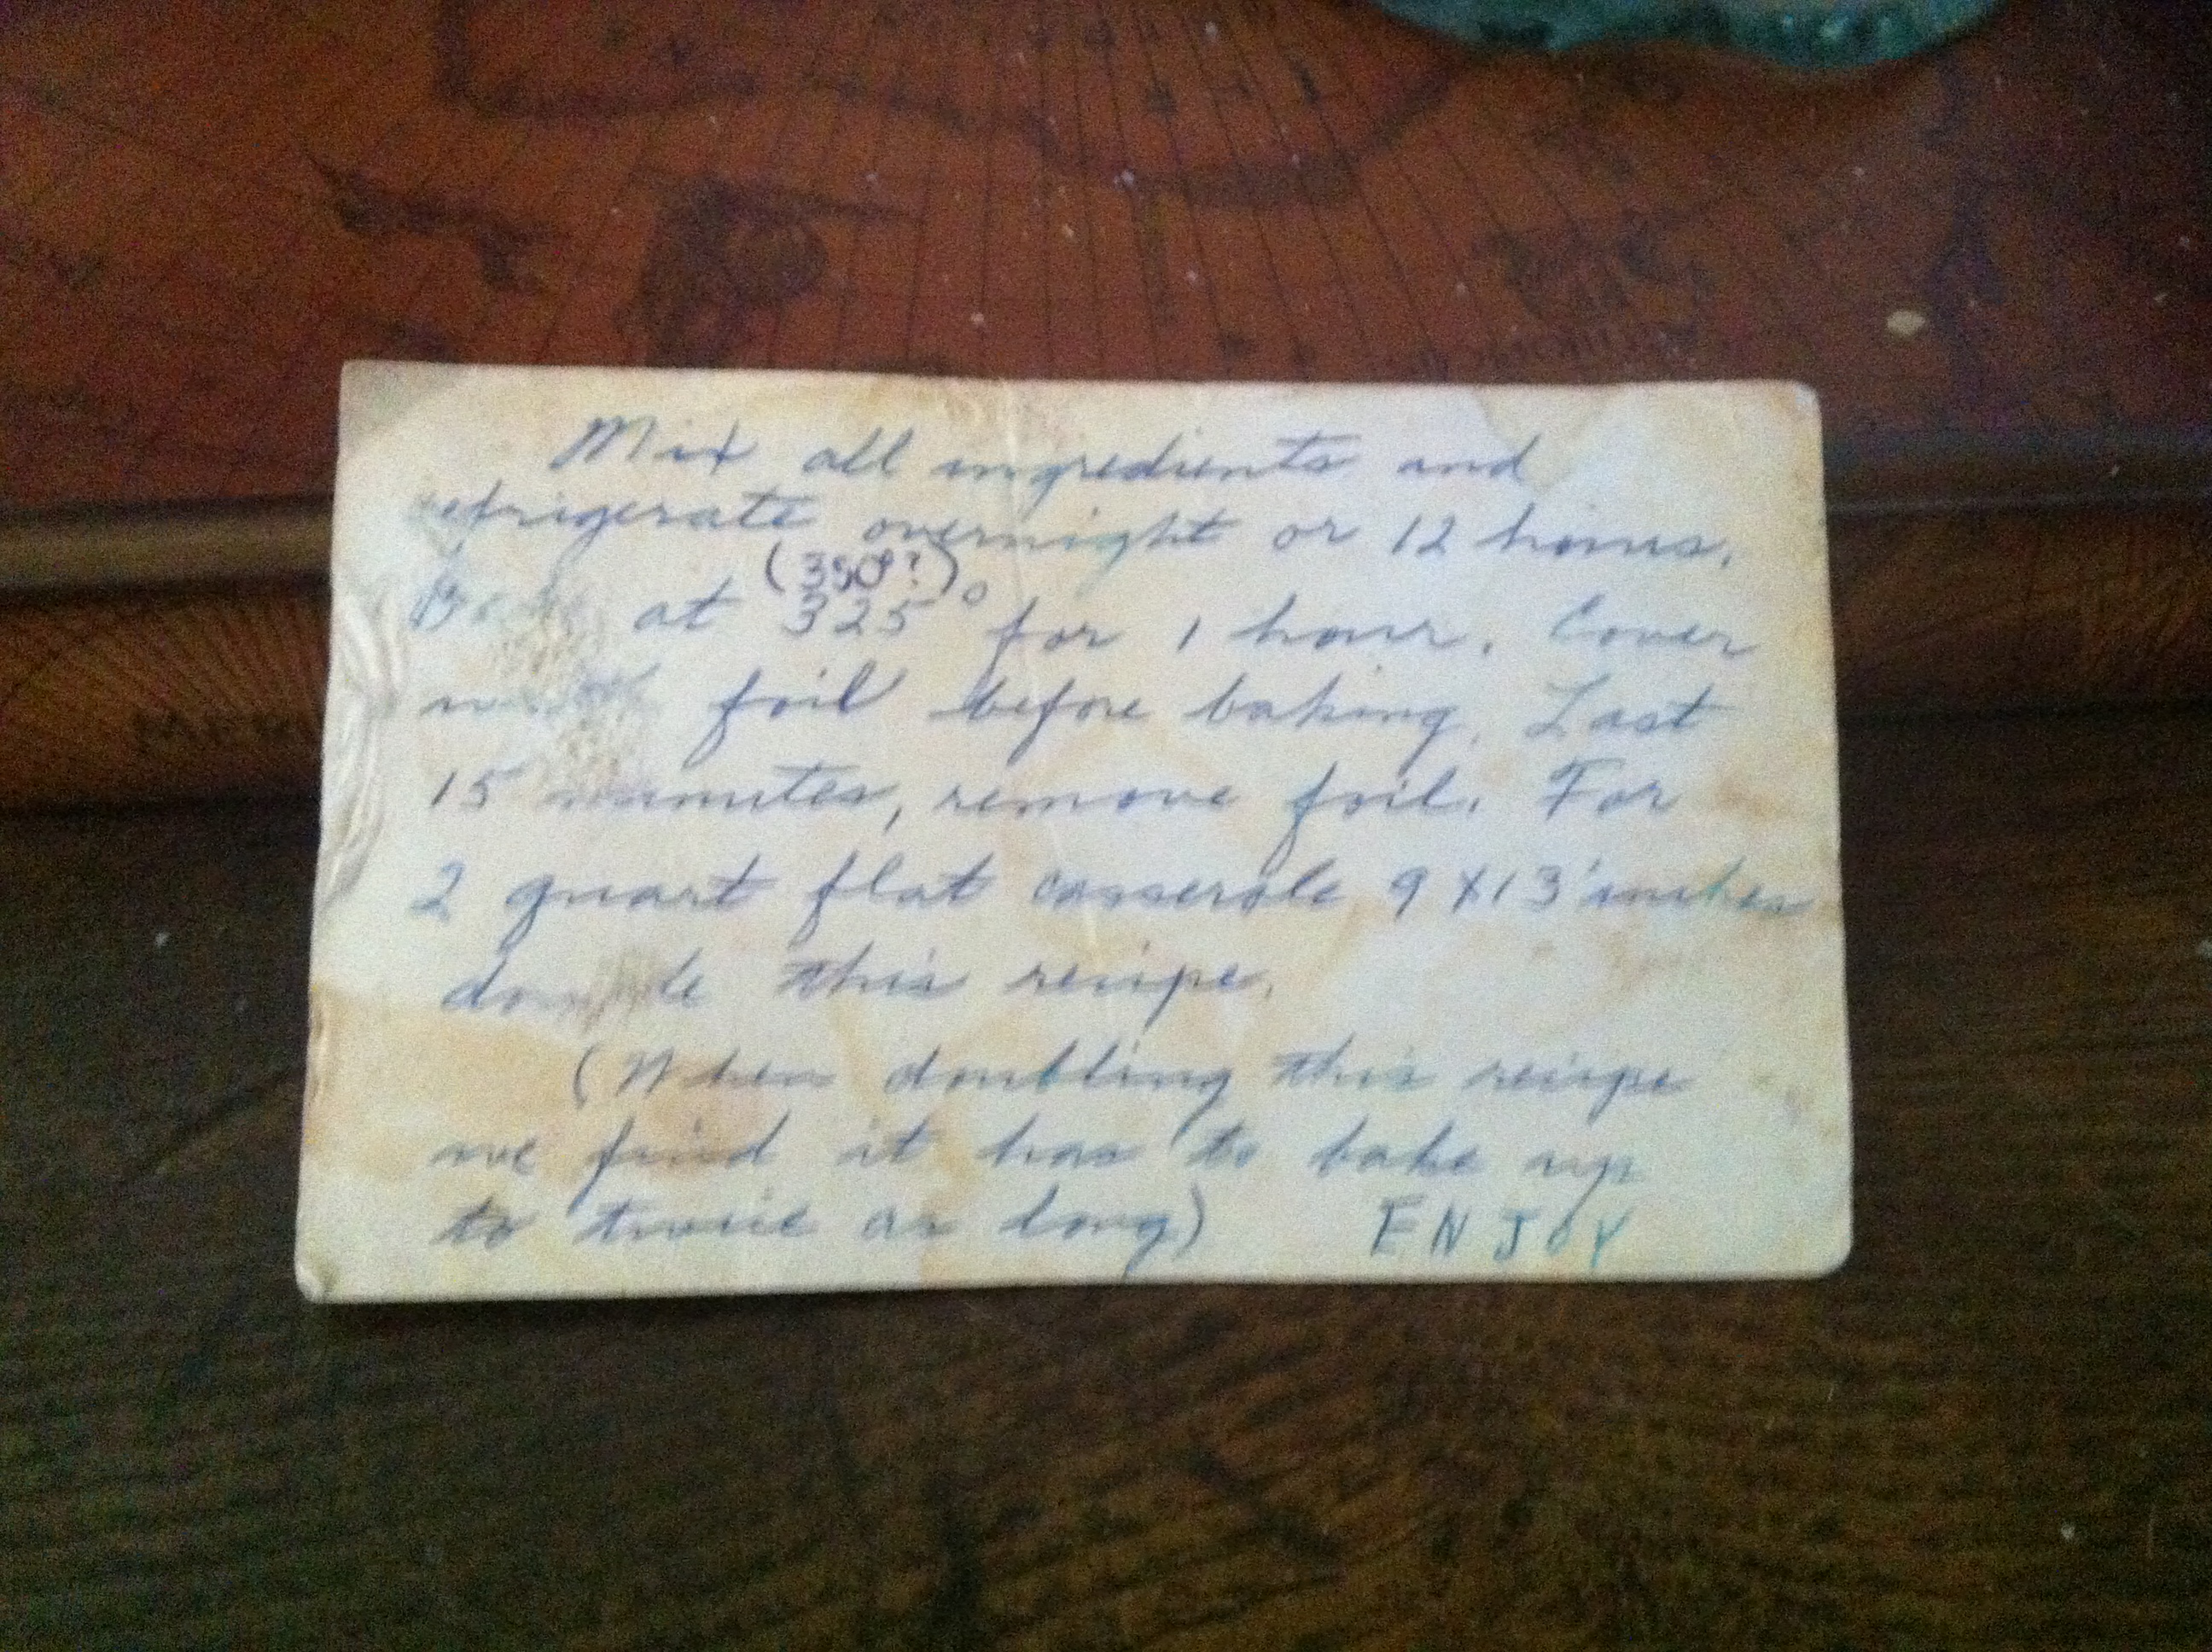 Mix all ingredients and
refrigerate overnight or 12 hours.
(350°?)
Bake at 325° for 1 hour. Cover
with foil before baking. Last
15 minutes, remove foil. For
2 quart flat casserole 9 X 13 inches
double this recipe.
(When doubling this recipe
we find it has to bake up
to twice as long) ENJOY